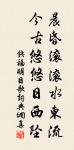 晨昏滚滚水东流
今古悠悠日西坠
钱福明日歌词典渊喜